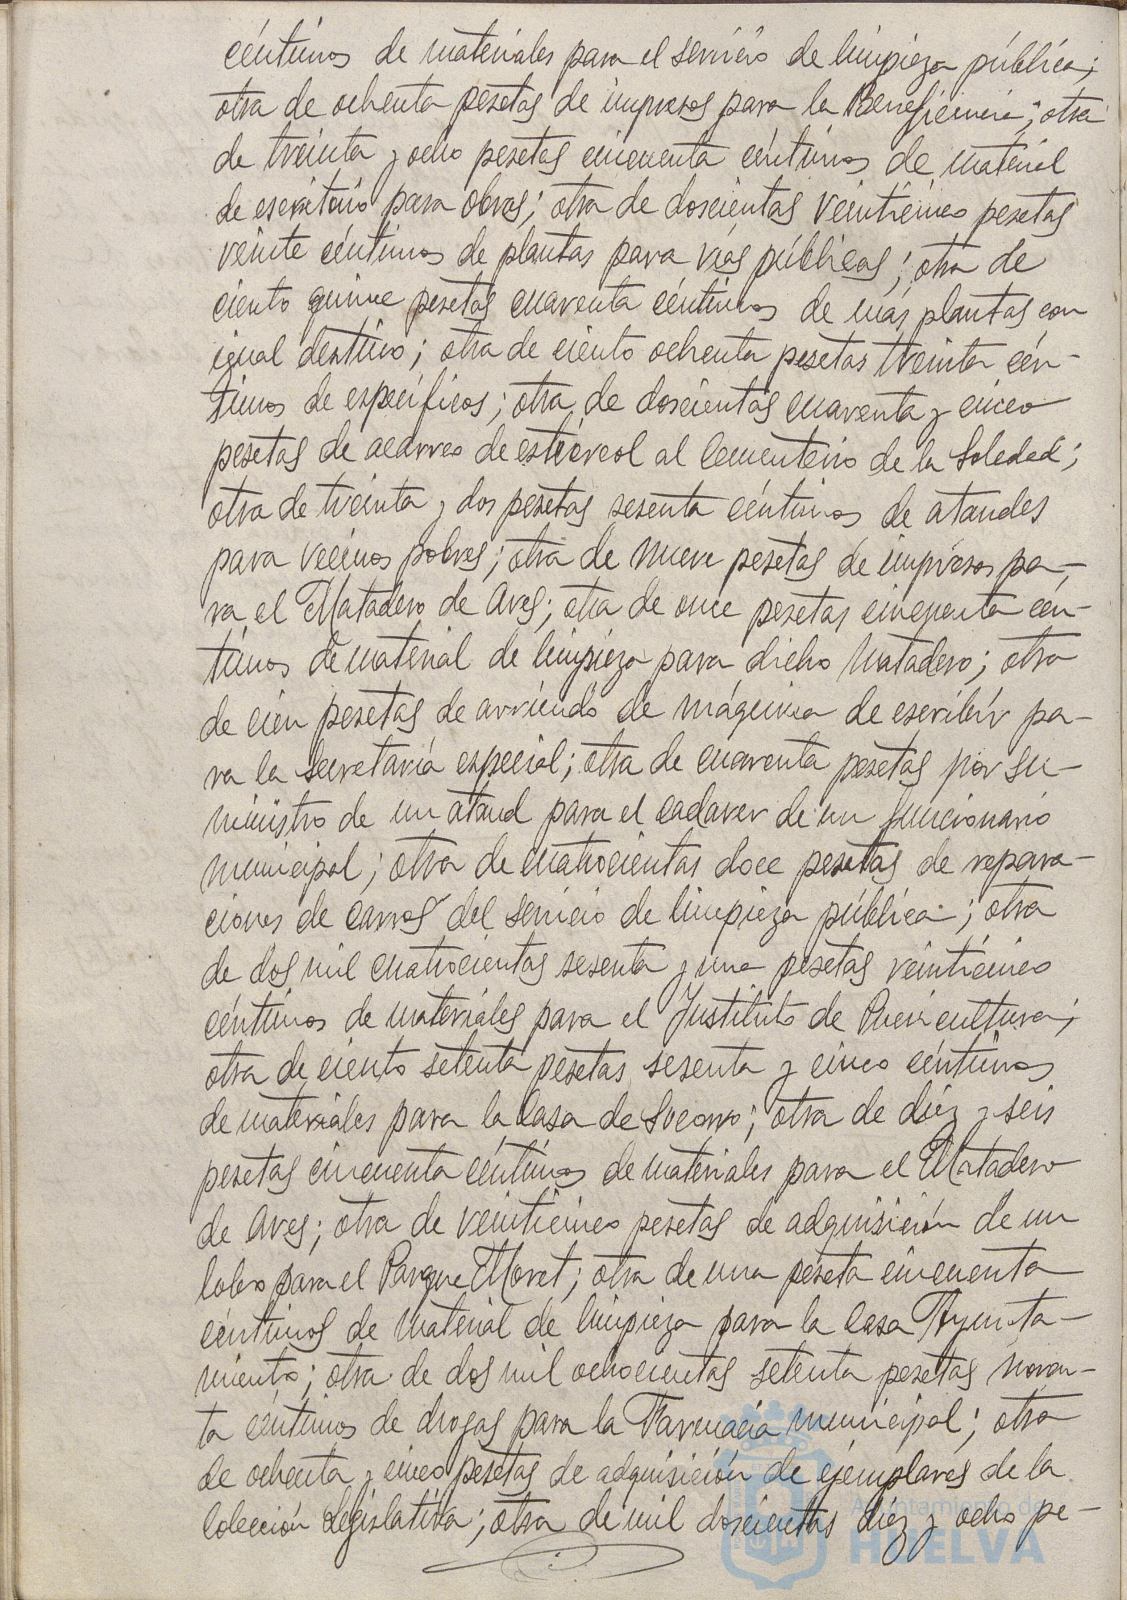 céntimos de materiales para el servicio de limpieza pública;
otra de ochenta pesetas de impresos para la Beneficencia; otra
de treinta y ocho pesetas cincuenta céntimos de material
de escritorio para obras; otra de doscientas veinticinco pesetas
veinte céntimos de plantas para vías públicas; otra de
ciento quince pesetas cuarenta céntimos de más plantas con
igual destino; otra de ciento ochenta pesetas treinta cén-
timos de específicos; otra de doscientas cuarenta y cinco
pesetas de acarreo de estiércol al Cementerio de la Soledad;
otra de treinta y dos pesetas sesenta céntimos de ataudes
para vecinos pobres; otra de nueve pesetas de impresos pa-
ra el Matadero de Aves; otra de once pesetas cincuenta cén-
timos de material de limpieza para dicho Matadero; otra
de cien pesetas de arriendo de máquina de escribir pa-
ra la Secretaría especial; otra de cuarenta pesetas por su-
ministro de un ataud para el cadaver de un funcionario
municipal; otra de cuatrocientas doce pesetas de repara-
ciones de carros del servicio de limpieza pública; otra
de dos mil cuatrocientas sesenta y una pesetas veinticinco
céntimos de materiales para el Instituto de Puericultura;
otra de ciento setenta pesetas sesenta y cinco céntimos
de materiales para la Casa de Socorro; otra de diez y seis
pesetas cincuenta céntimos de materiales para el Matadero
de Aves; otra de veinticinco pesetas de adquisición de un
lobo para el Parque Moret; otra de una peseta cincuenta
céntimos de material de limpieza para la Casa Ayunta-
miento; otra de dos mil ochocientas setenta pesetas noven-
ta céntimos de drogas para la Farmacia municipal; otra
de ochenta y cinco pesetas de adquisición de ejemplares de la
Colección Legislativa; otra de mil doscientas diez y ocho pe-
Ayuntamiento de
HUELVA